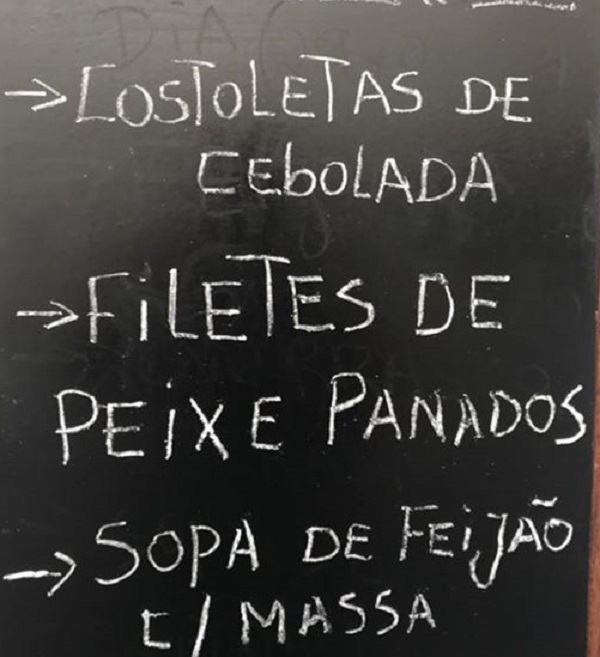 → COSTOLETAS DE
CEbOLADA
→ FiLETES DE
PEiXE PANADOS
→ SOPA DE FEiJÃO
C/ MASSA